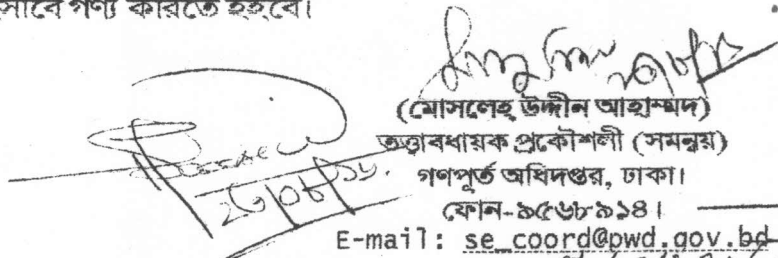 হিসাবে গণ্য করিতে হইবে।
(মোসলেহ্ উদ্দীন আহাম্মদ)
তত্ত্বাবধায়ক প্রকৌশলী (সমন্বয়)
গণপূর্ত অধিদপ্তর, ঢাকা।
ফোন-৯৫৬৮৯১৪।
E-mail: se_coord@pwd.gov.bd